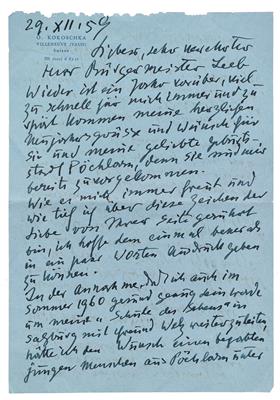 29.XII.59
O. KOKOSCHKA
VILLENEUVE (VAUD)
Suisse
Liebster, sehr verehrter
Herr Bürgermeister Loeb
Wieder ist ein Jahr vorüber, viel
zu schnell für mich immer und zu
spät kommen meine herzlichen
Neujahrsgrüsse und Wünsche für
Sie und meine geliebte Geburts-
stadt Pöchlarn, denn Sie sind mir
bereits zuvorgekommen.
Wie es mich immer freut und
wie tief ich über diese Zeichen der
Liebe von Ihrer Seite gerührt
bin, ich hoffe dem einmal besser als
in ein paar Worten Ausdruck geben
zu können.
In der Annahme, daß ich auch im
Sommer 1960 gesund genug sein werde
um meine "Schule des Sehens" in
Salzburg mit Freund Welz weiterzuleiten,
hätte ich den Wunsch einen begabten
jungen Menschen aus Pöchlarn unter